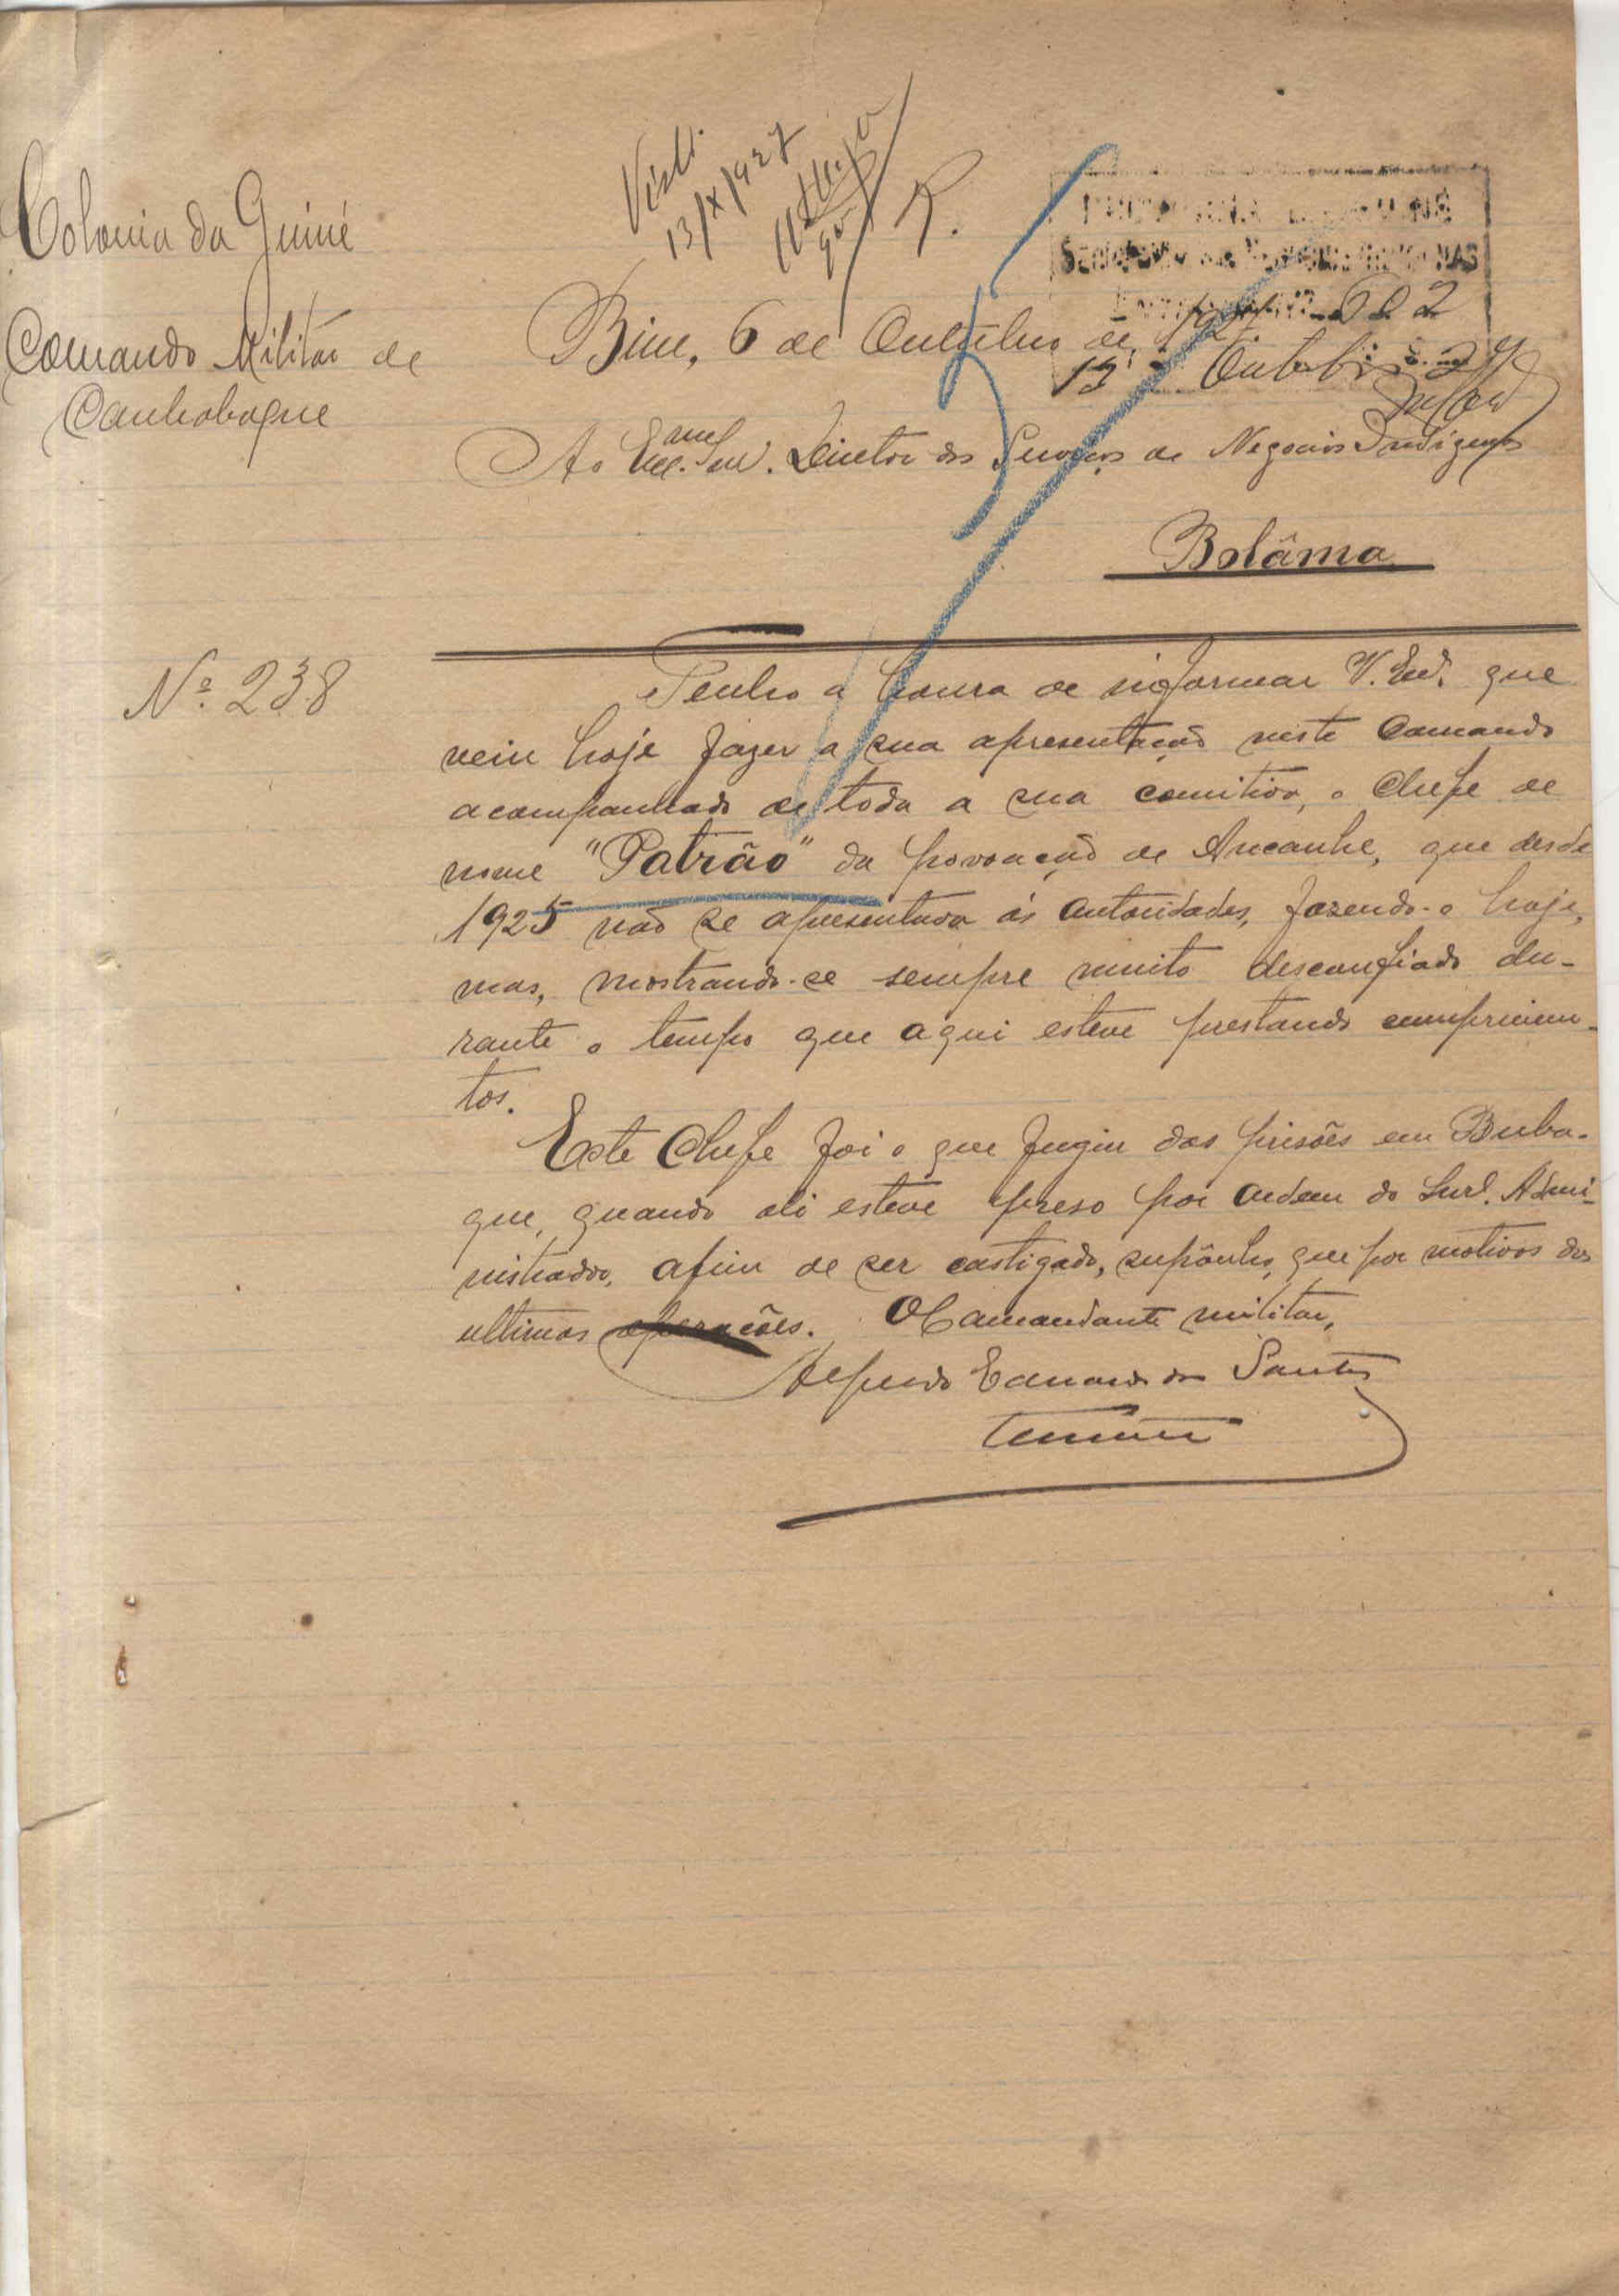 Visto
13/X/927
R.
Colonia da Guiné
Comando Militar de
Canhabaque
602
13 Outubro 27
Bine, 6 de Outubro de 1927
Ao Exmo. Snr. Diretor dos Serviços de Negocios Indigenas
Bolâma
Nº 238
Tenho a honra de informar V. Exª. que
veiu hoje fazer a sua apresentação neste Comando
acompanhado de toda a sua comitiva, o Chefe de
nome "Patrão" da povoação de Ancanhe, que desde
1925 não se apresentava ás autoridades, fazendo-o hoje,
mas, mostrando-se sempre muito desconfiado du-
rante o tempo que aqui esteve prestando cumprimen-
tos.
Este Chefe foi o que fugiu das prisões em Buba-
que, quando ali esteve preso por ordem do Snr. Admi-
nistrador, afim de ser castigado, supônho, que por motivos das
ultimas operações. O Comandante militar,
Alfredo Eduardo dos Santos
Tenente